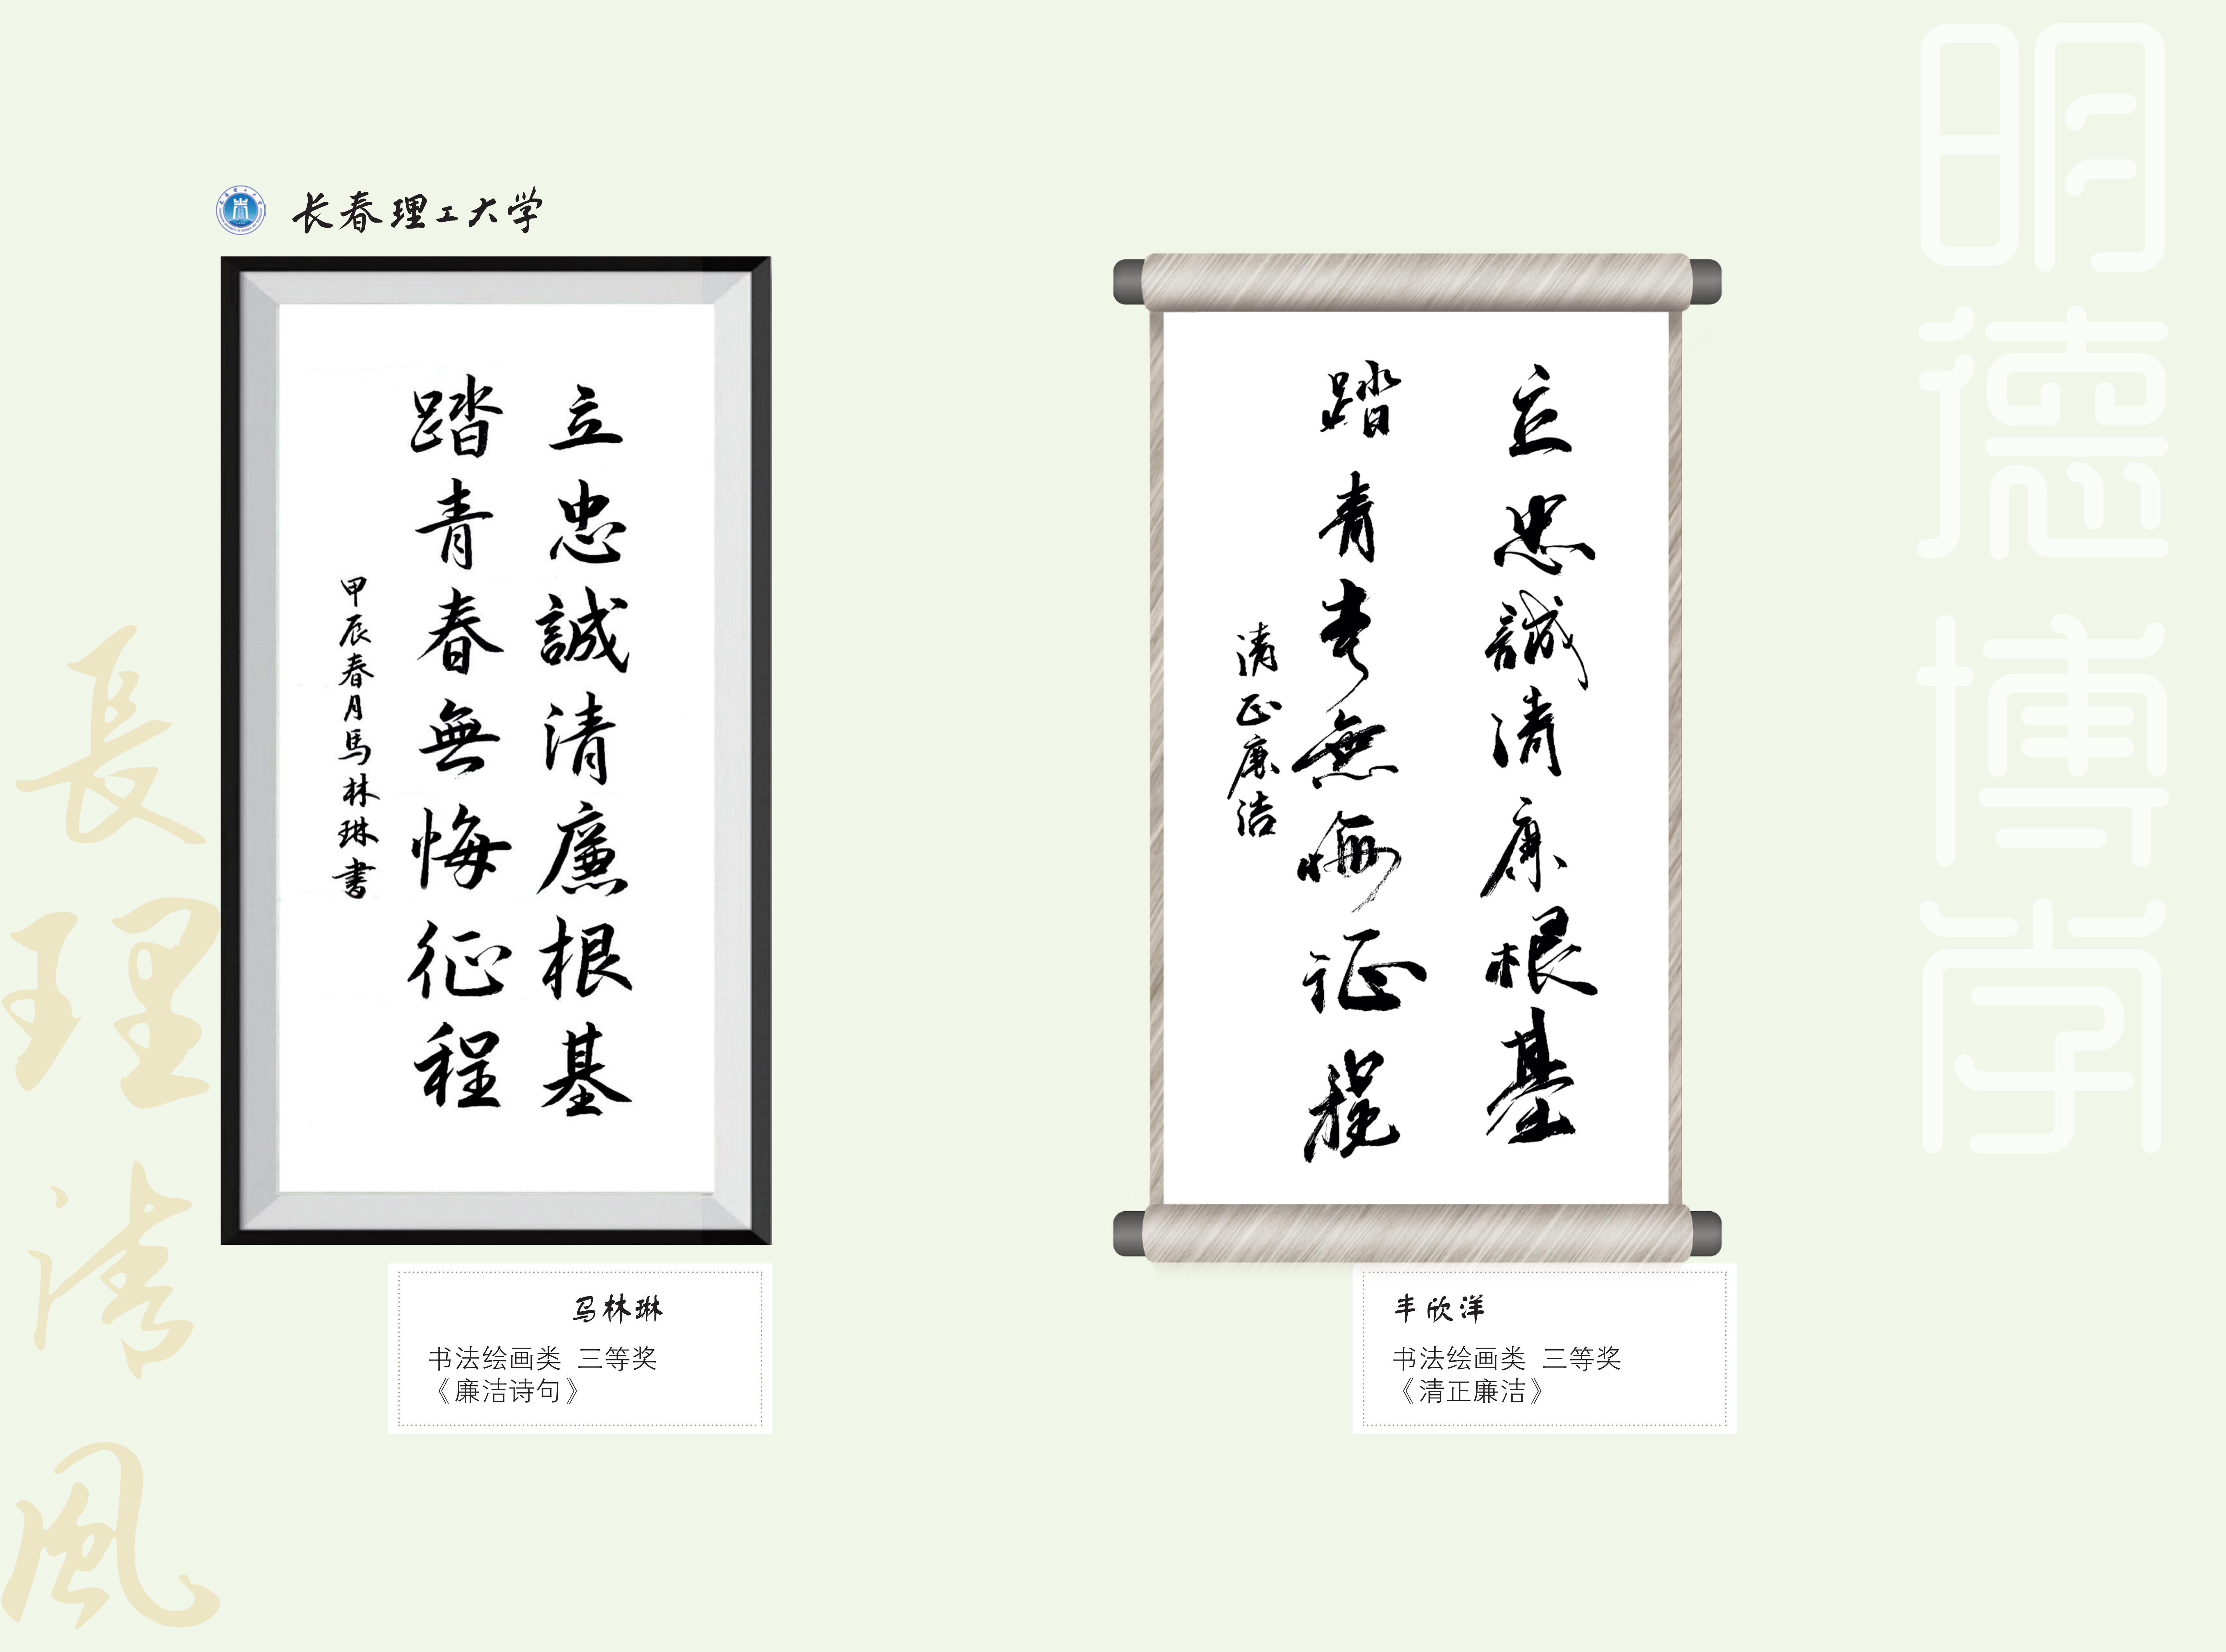 长春理工大学
立忠誠清廉根基
踏青春無悔征程
甲辰春月馬林琳書
马林琳
书法绘画类 三等奖
《廉洁诗句》
立忠誠清廉根基
踏青春無悔征程
清正廉洁
丰欣洋
书法绘画类 三等奖
《清正廉洁》
明德博学
長理清風